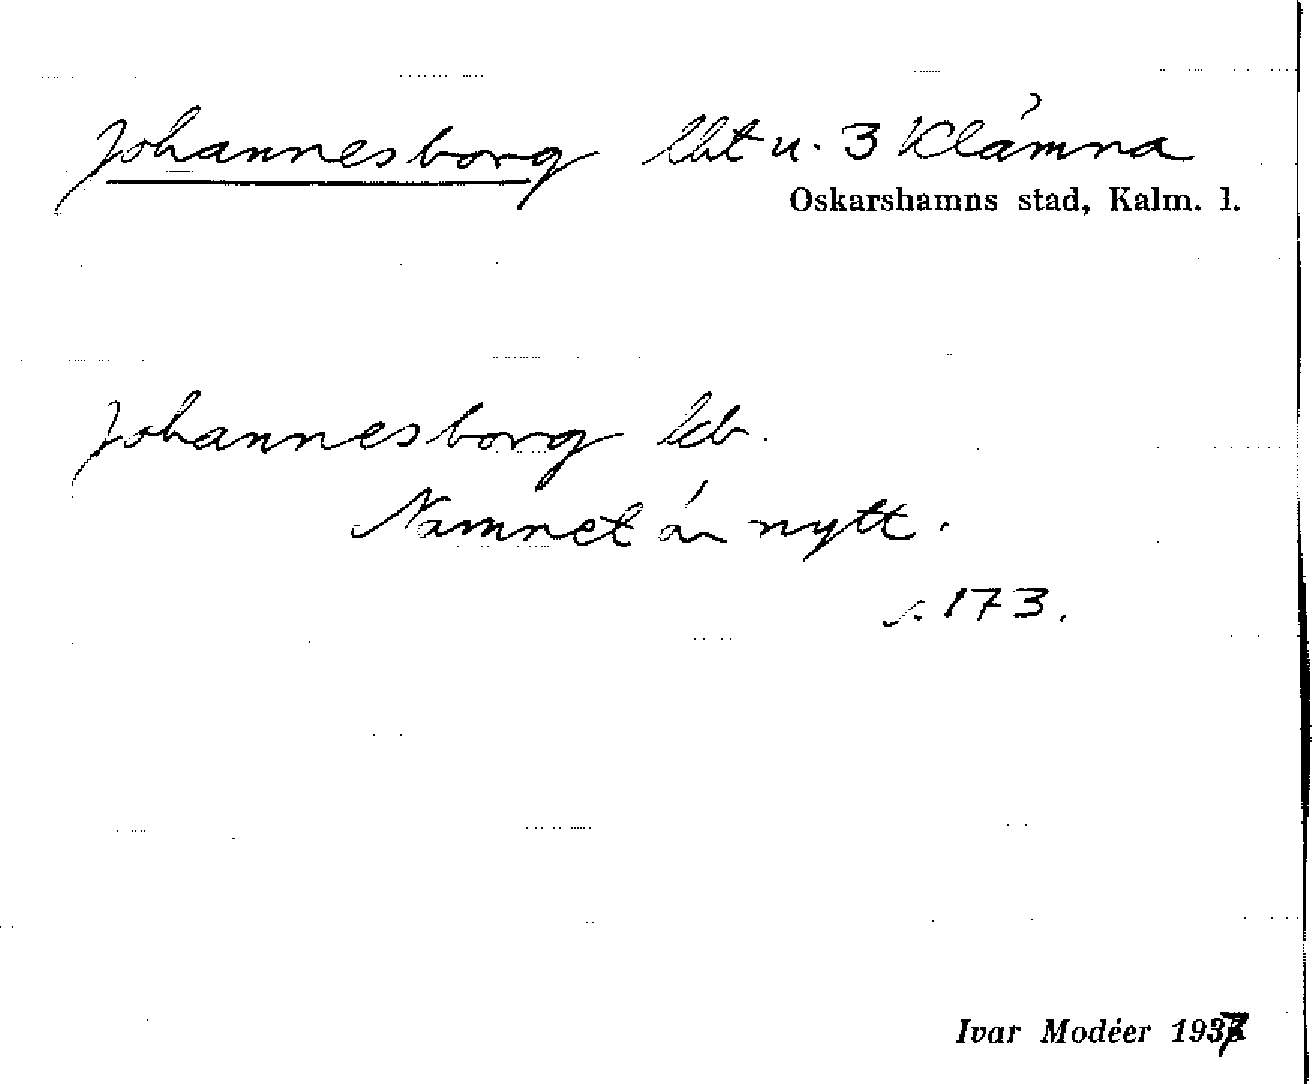 Johannesborg lht u. 3 Klämna
Oskarshamns stad, Kalm. l.
Johannesborg lcb.
Namnet är nytt.
s. 173.
Ivar Modéer 1937